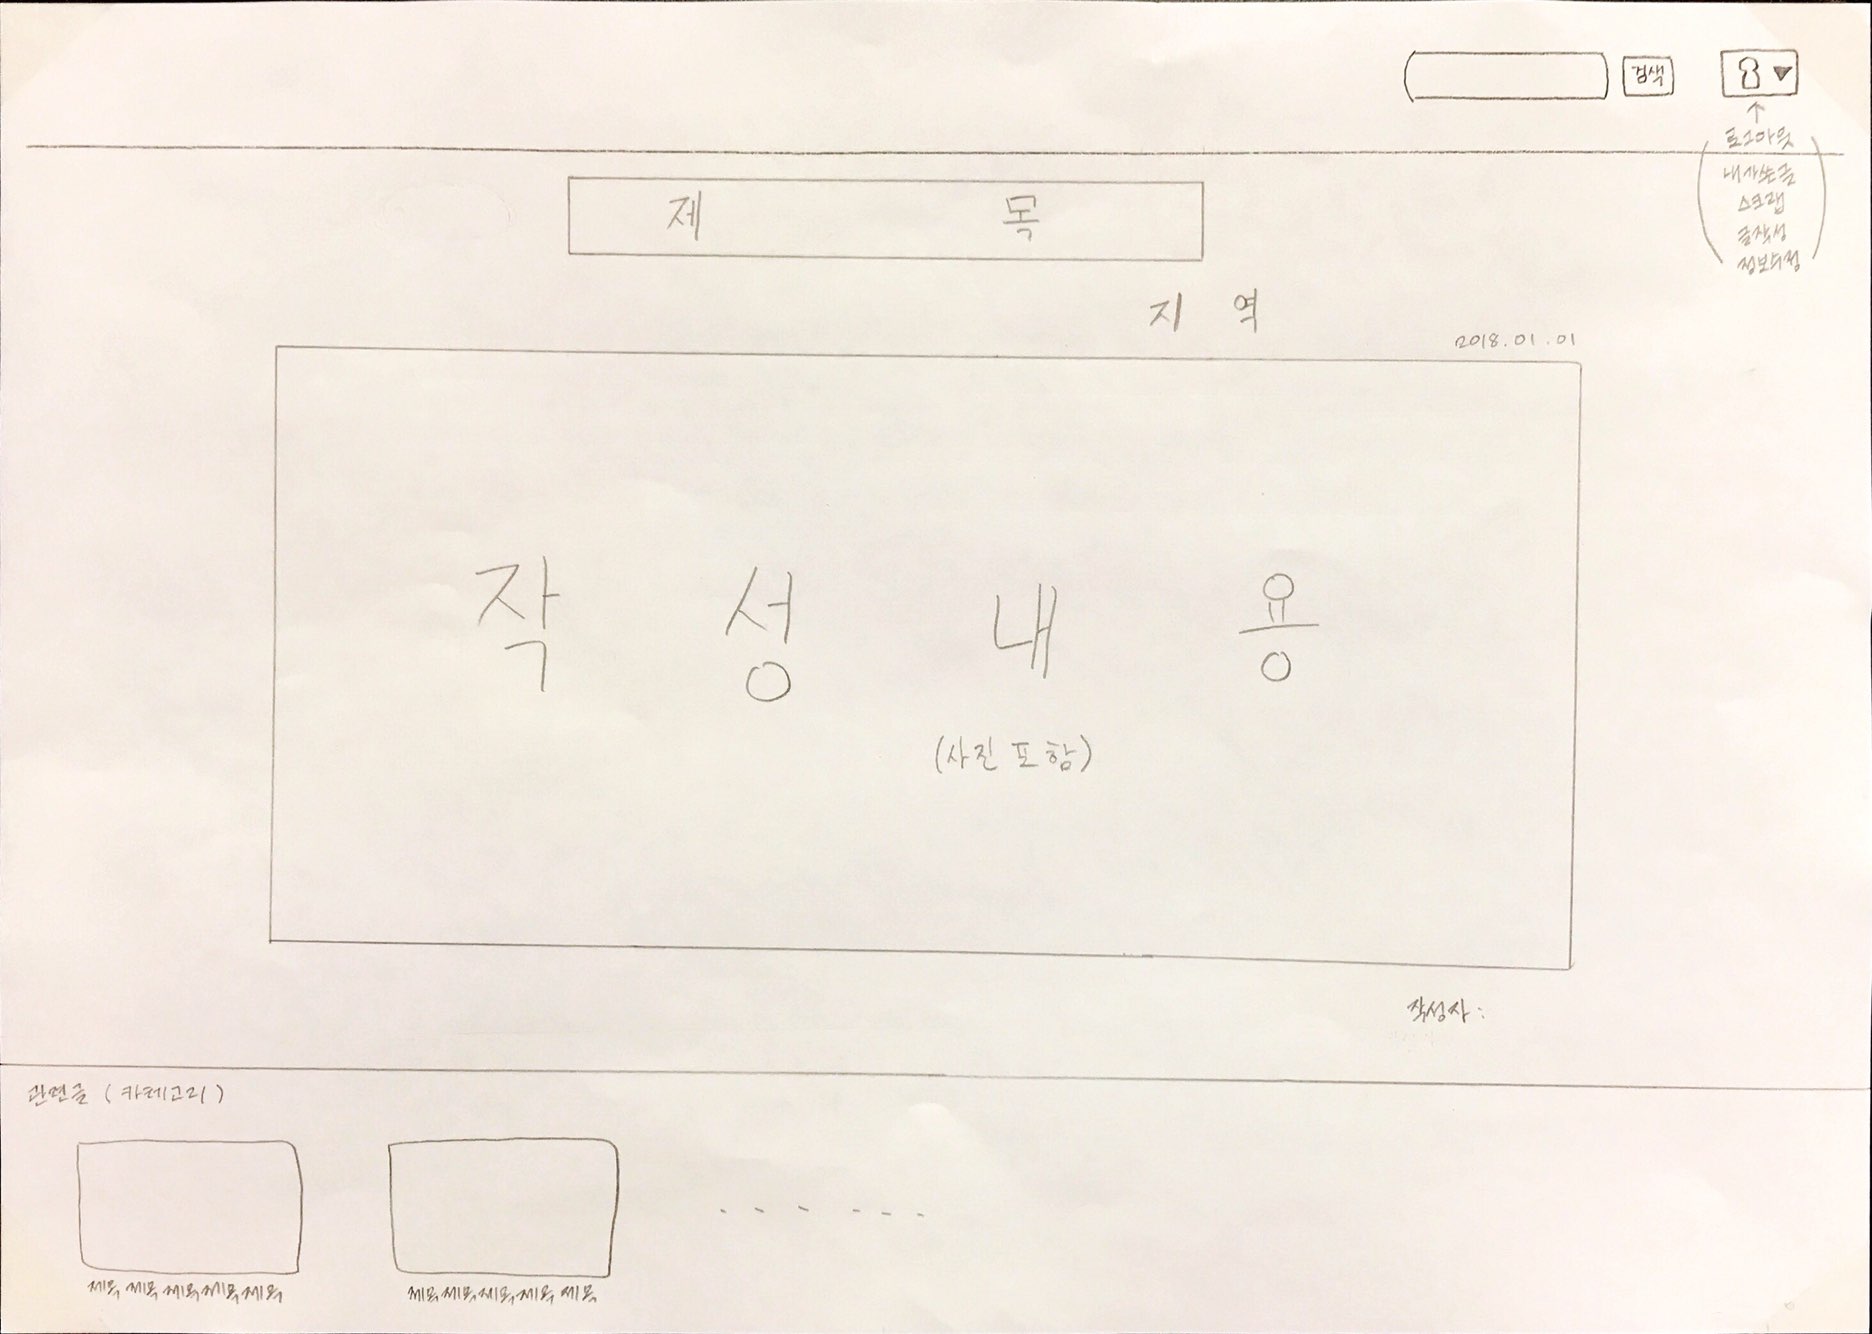 검색
로그아웃
내가쓴글
스크랩
글작성
정보수정
제 목
지 역
2018.01.01
작 성 내 용
(사진 포함)
작성자 :
관련글 (카테고리)
제목 제목 제목 제목 제목
제목 제목 제목 제목 제목